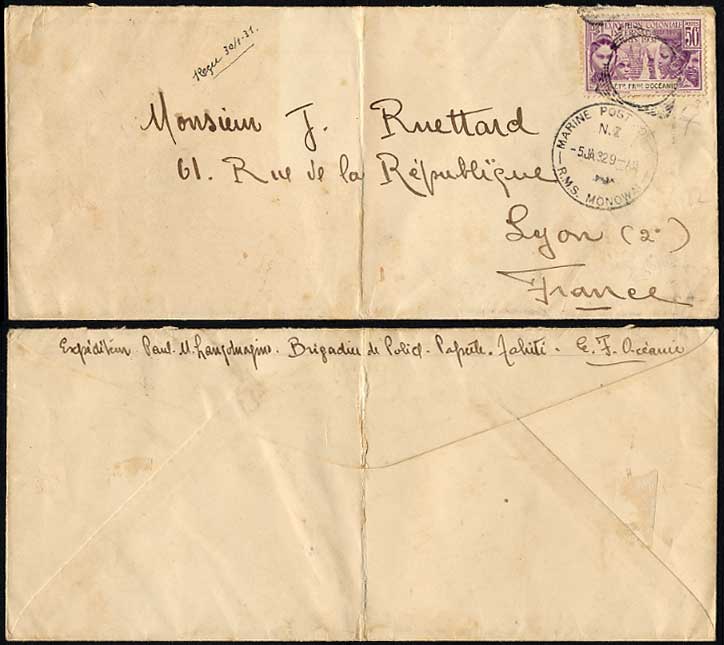 Reçu 30/1-31.
EXPOSITION COLONIALE
50c
ETS FRANC D'OCÉANIE
Monsieur J. Ruettard
61. Rue de la République
Lyon (2e)
France
MARINE POST
N.Z
-5JA32 9-AM
R.M.S. MONOWAI
Expéditeur Paul. M. Brigadier de Police - Papeete. Tahiti - E. F. Océanie